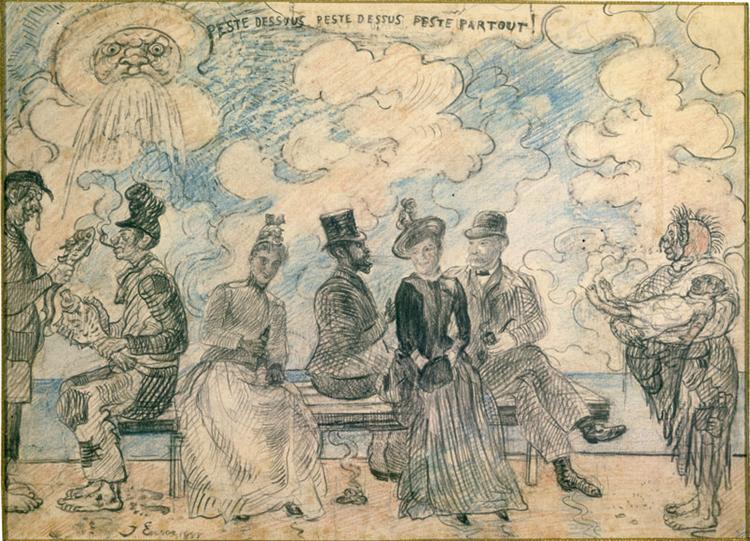 PESTE DESSOUS PESTE DESSUS PESTE PARTOUT!
J Ensor 1888